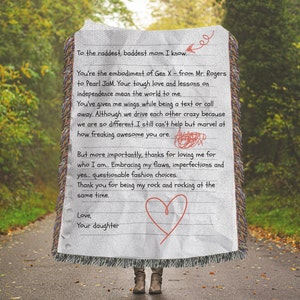 To the raddest, baddest mom I know,
You're the embodiment of Gen X - from Mr. Rogers
to Pearl JaM. Your tough love and lessons on
independence mean the world to me.
You've given me wings while being a text or call
away. Although we drive each other crazy because
we are so different..I still can't help but marvel at
how freaking awesome you are.
But more importantly, thanks for loving me for
who I am... Embracing my flaws, imperfections and
yes... questionable fashion choices.
Thank you for being my rock and rocking at the
same time.
Love,
Your daughter